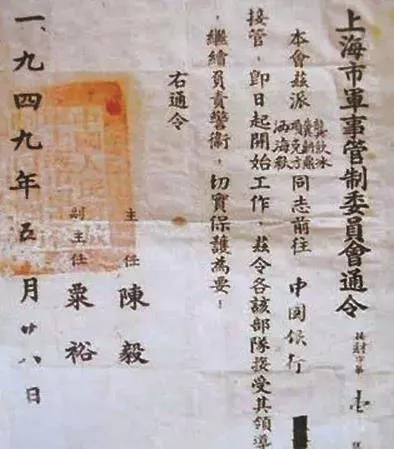 上海市軍事管制委員會通令
財字第壹
本會茲派 龔飲冰 項克方 同志前往 中國銀行
接管,即日起開始工作,茲令各該部隊接受其領導
,繼續負責警衛,切實保護為要!
右通令
主任 陳毅
副主任 粟裕
一、九四九年五月廿八日